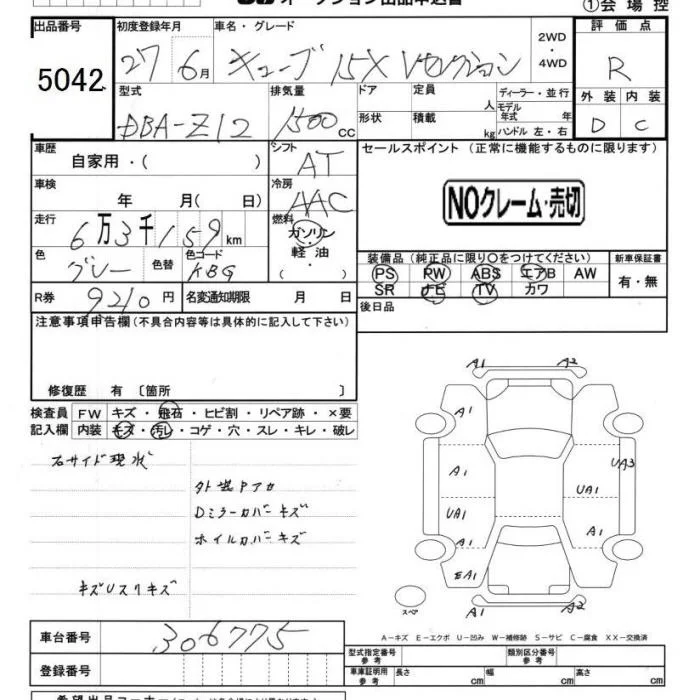 オークション出品申込書
①会場控
出品番号 5042
初度登録年月 27年6月
車名・グレード キューブ 15X Vセレクション
2WD・4WD
評価点 R
型式 DBA-Z12
排気量 1500cc
ドア 形状
定員 人
積載 kg
ディーラー・並行
モデル年式 年
ハンドル 左・右
外装 D
内装 C
車歴 自家用・( )
シフト AT
セールスポイント(正常に機能するものに限ります)
車検 年 月( 日)
冷房 AAC
NOクレーム・売切
走行 6万3千159km
燃料 ガソリン・軽油・( )
色 グレー 色替
色コード KBG
装備品(純正品に限り○をつけてください)
新車保証書
PS PW ABS エアB AW
有・無
SR ナビ TV カワ
R券 9210円
名変通知期限 月 日
後日品
注意事項申告欄(不具合内容等は具体的に記入して下さい)
修復歴 有 〔箇所 〕
検査員記入欄
FW キズ・飛石・ヒビ割・リペア跡・×要
内装 キズ・汚レ・コゲ・穴・スレ・キレ・破レ
右サイド現状
外装Pアカ
Dミラーカバーキズ
ホイルカバーキズ
キズUスリキズ
A1 A2
A1
UA3
A1
UA1
UA1
A1
A1
EA1
スペア
A1 A2
A-キズ E-エクボ U-凹み W-補修跡 S-サビ C-腐食 XX-交換済
車台番号 306775
型式指定番号 参考
類別区分番号 参考
登録番号
車庫証明用 参考
長さ cm
幅 cm
高さ cm